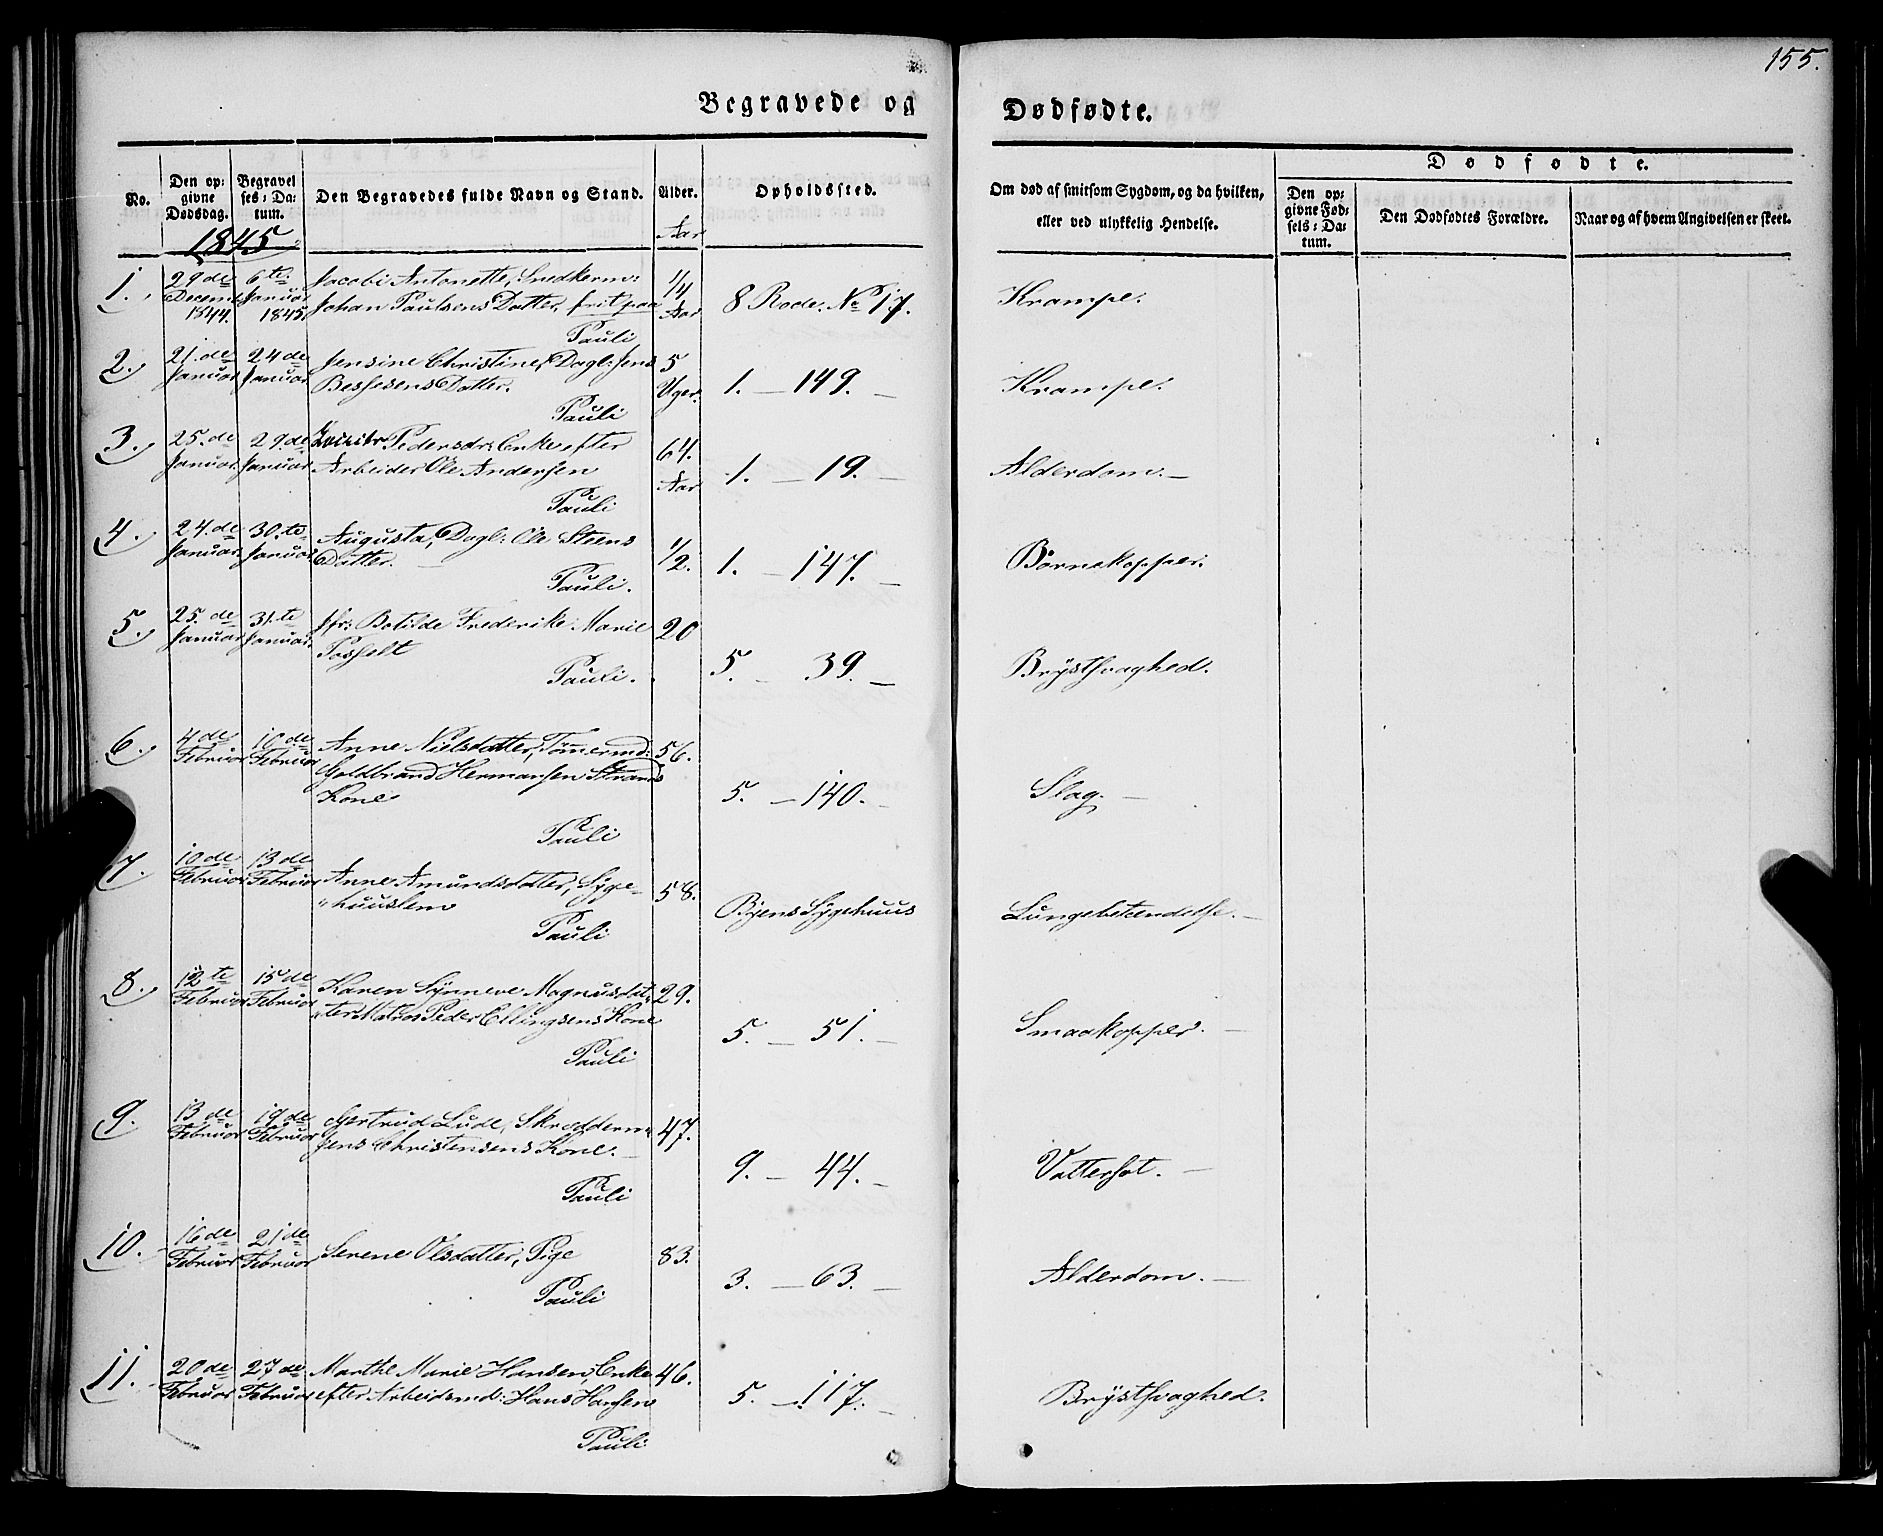 155.
Begravede og Dødfødte.
No.
Den op-
givne
Dødsdag.
Begravel
ses-Da-
tum.
Den Begravedes fulde Navn og Stand.
Alder.
Aar
Opholdssted.
Om død af smitsom Sygdom, og da hvilken,
eller ved ulykkelig Hendelse.
Dødfødte.
Den op-
givne Fød-
sels-Da-
tum.
Den Dødfødtes Forældre.
Naar og af hvem Angivelsen er skeet.
1845
1. 29de 6te Jacobi Antonette, Snedkerm: 1/4
Decemb Januar Johan Paulsens Datter, frit paa Aar 8 Rode. No 17. Krampe.
1844. 1845.
Pauli
2. 21de 24de Jensine Christine, Dagl: Jens 5
Januar Januar Datter. Uger. 1. — 149. — Krampe.
Pauli
3. 25.de 29de Pedersdr: Enke efter 64.
Januar. Januar. Arbeider Ole Andersen Aar 1. — 19. — Alderdom. —
Pauli
4. 24.de 30.te Augusta, Dagl: Ole Steens 1/2.
Januar. Januar. Datter. — 1. — 147. — Børnekopper.
Pauli.
5. 25.de 31.te Jfr: Botilde Frederike Marie 20
Januar Januar. Posselt 5. — 39. — Brystsvaghed.
Pauli.
6. 4de 10de Anne Nielsdatter, Tømermd: 56.
Februar Februar Goldbrand Hermansen Strands
Kone 5. — 140. — Slag. —
Pauli
7. 10de 13de Anne Amundsdatter, Syge- 58.
Februar Februar "huuslem Byens Sygehuus Lungebetændelse. —
Pauli
8. 12te 15de Karen Synneve Magnusdat- 29.
Februar Februar "ter Matros Peder Ellingsens Kone 5. — 51. — Smaakopper. —
Pauli
9. 13de 19de Gertrud Lude, Skrædderm: 47.
Februar Februar Jens Christensens Kone. — 9. — 44. — Vattersot. —
Pauli
10. 16de 21de Serene Olsdatter, Pige 83.
Februar Februar 3. — 63. — Alderdom. —
Pauli
11. 20de 27de Marthe Marie Hansen, Enke 46.
Februar Februar efter Arbeidsmd: Hans Hansen 5. — 117. — Brystsvaghed.
Pauli